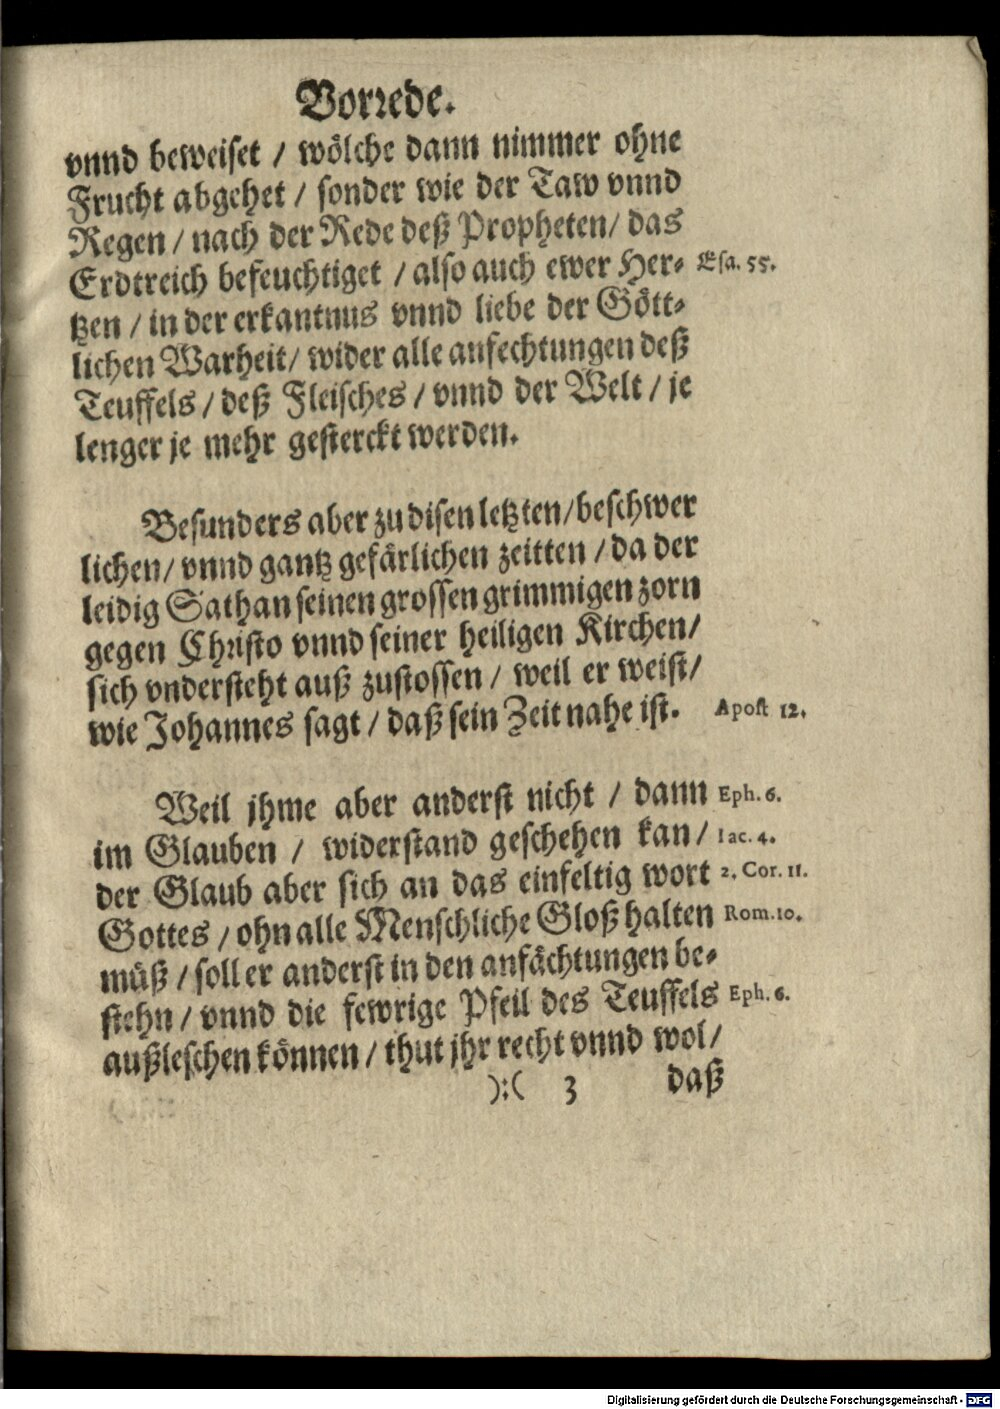 Vorrede.
vnnd beweiset / wölche dann nimmer ohne
Frucht abgehet / sonder wie der Taw vnnd
Regen / nach der Rede deß Propheten / das
Erdtreich befeuchtiget / also auch ewer Her- Esa. 55.
tzen / in der erkantnus vnnd liebe der Gött-
lichen Warheit / wider alle anfechtungen deß
Teuffels / deß Fleisches / vnnd der Welt / je
lenger je mehr gesterckt werden.
Besunders aber zu disen letzten / beschwer
lichen / vnnd gantz gefärlichen zeitten / da der
leidig Sathan seinen grossen grimmigen zorn
gegen Christo vnnd seiner heiligen Kirchen /
sich vndersteht auß zustossen / weil er weist /
wie Johannes sagt / daß sein Zeit nahe ist. Apost 12.
Weil jhme aber anderst nicht / dann Eph. 6.
im Glauben / widerstand geschehen kan / Iac. 4.
der Glaub aber sich an das einfeltig wort 2. Cor. 11.
Gottes / ohn alle Menschliche Gloß halten Rom. 10.
müß / soll er anderst in den anfächtungen be-
stehn / vnnd die fewrige Pfeil des Teuffels Eph. 6.
außleschen können / thut jhr recht vnnd wol /
):( 3 daß
Digitalisierung gefördert durch die Deutsche Forschungsgemeinschaft - DFG